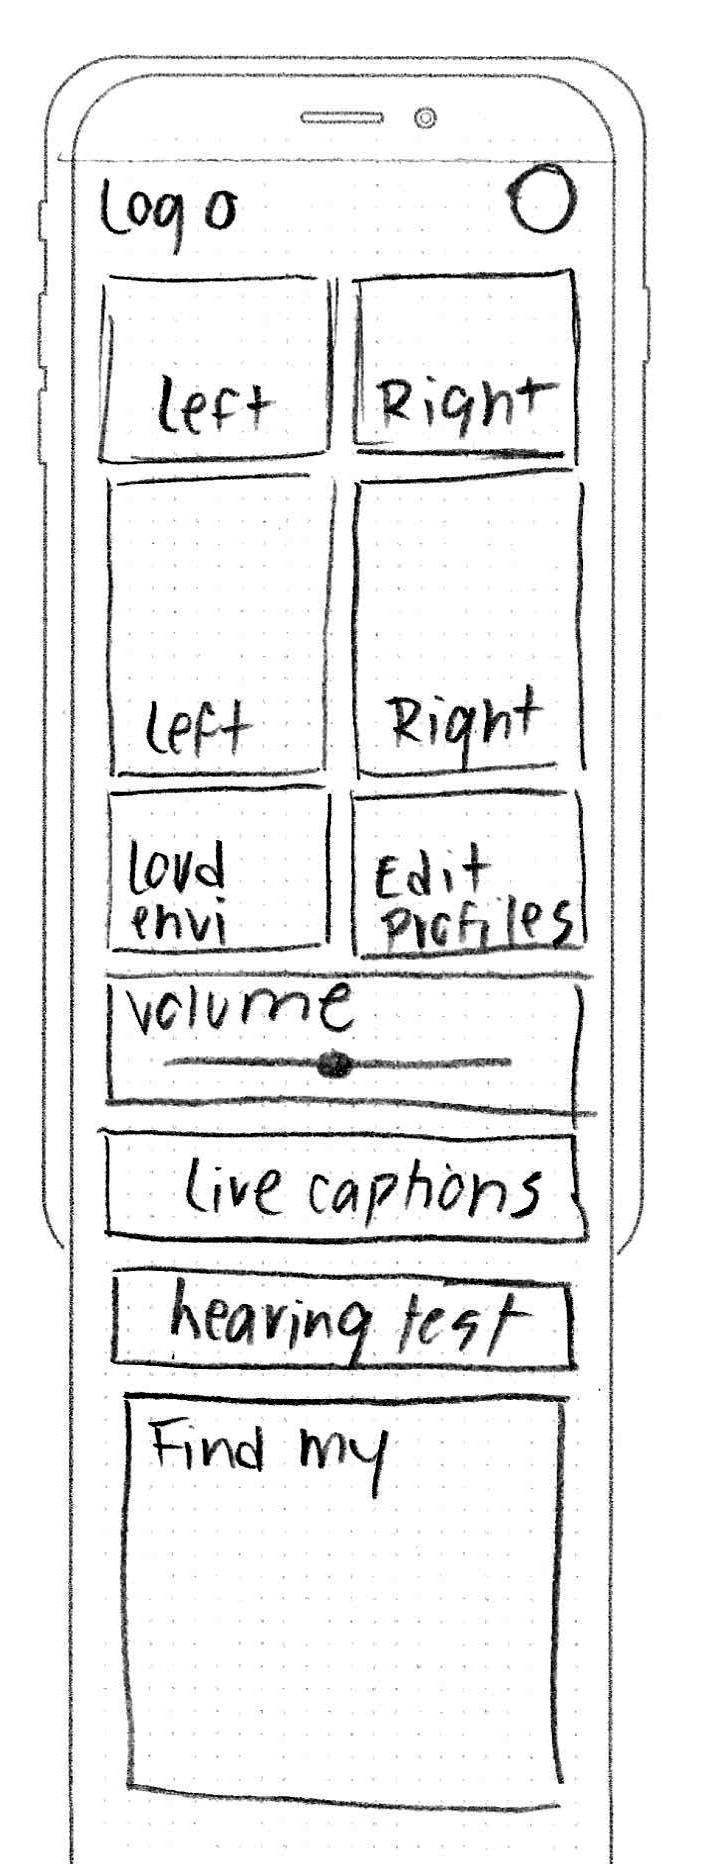 Logo
Left
Right
Left
Right
Loud
envi
Edit
Profiles
volume
Live captions
hearing test
Find my